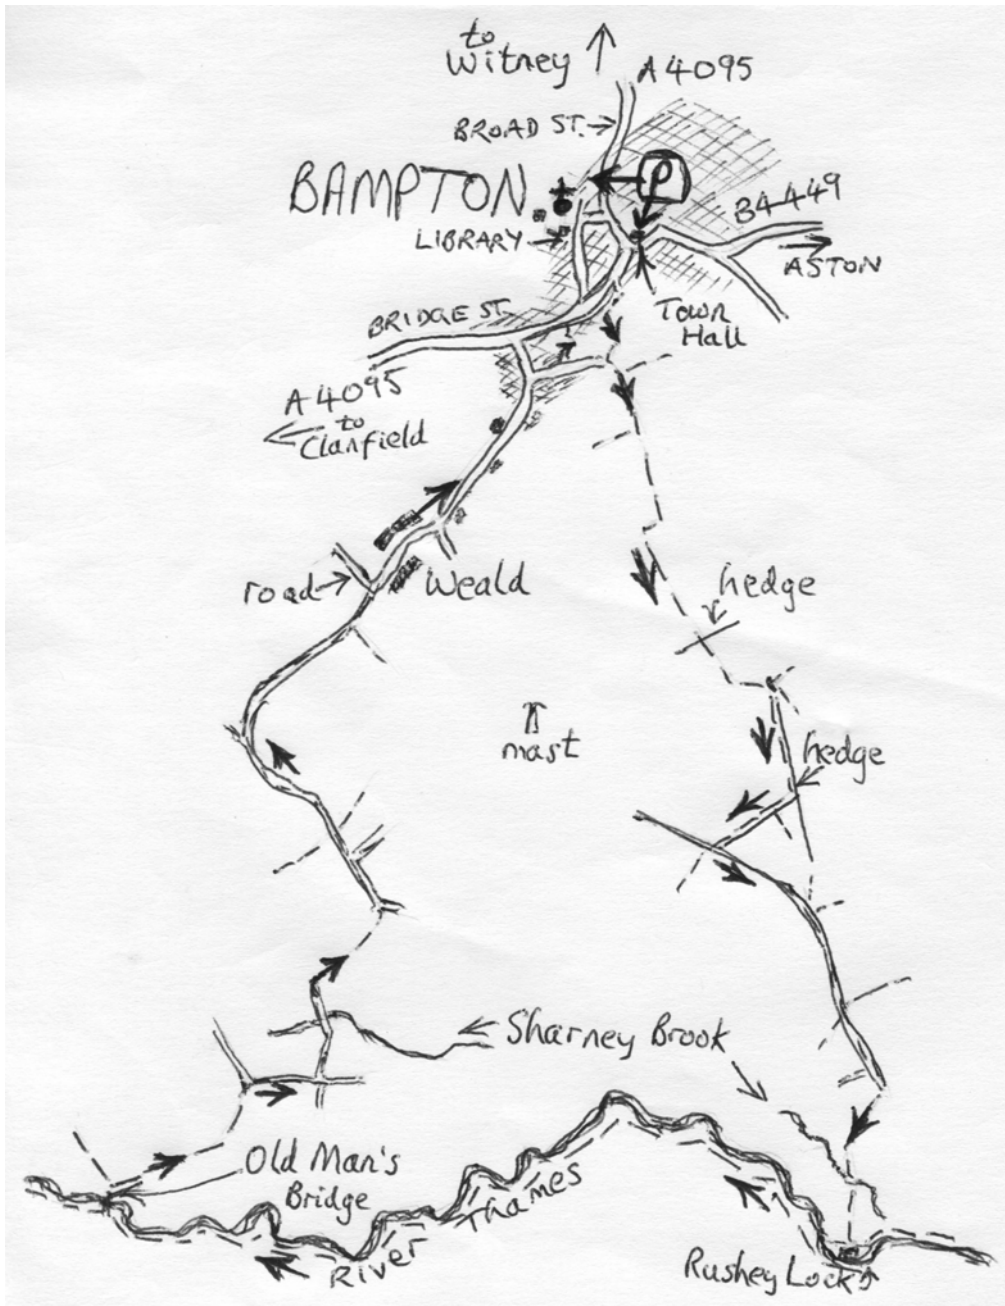 to
Witney
A4095
BROAD ST.
P
BAMPTON
B4449
LIBRARY
ASTON
BRIDGE ST.
Town
Hall
A4095
to
Clanfield
road
Weald
hedge
mast
hedge
Sharney Brook
Old Man's
Bridge
River Thames
Rushey Lock